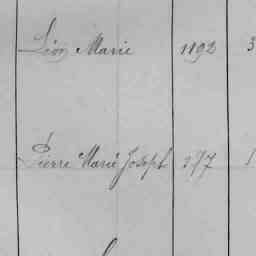 Léon Marie 1192 3
Pierre Marie Joseph 277 1